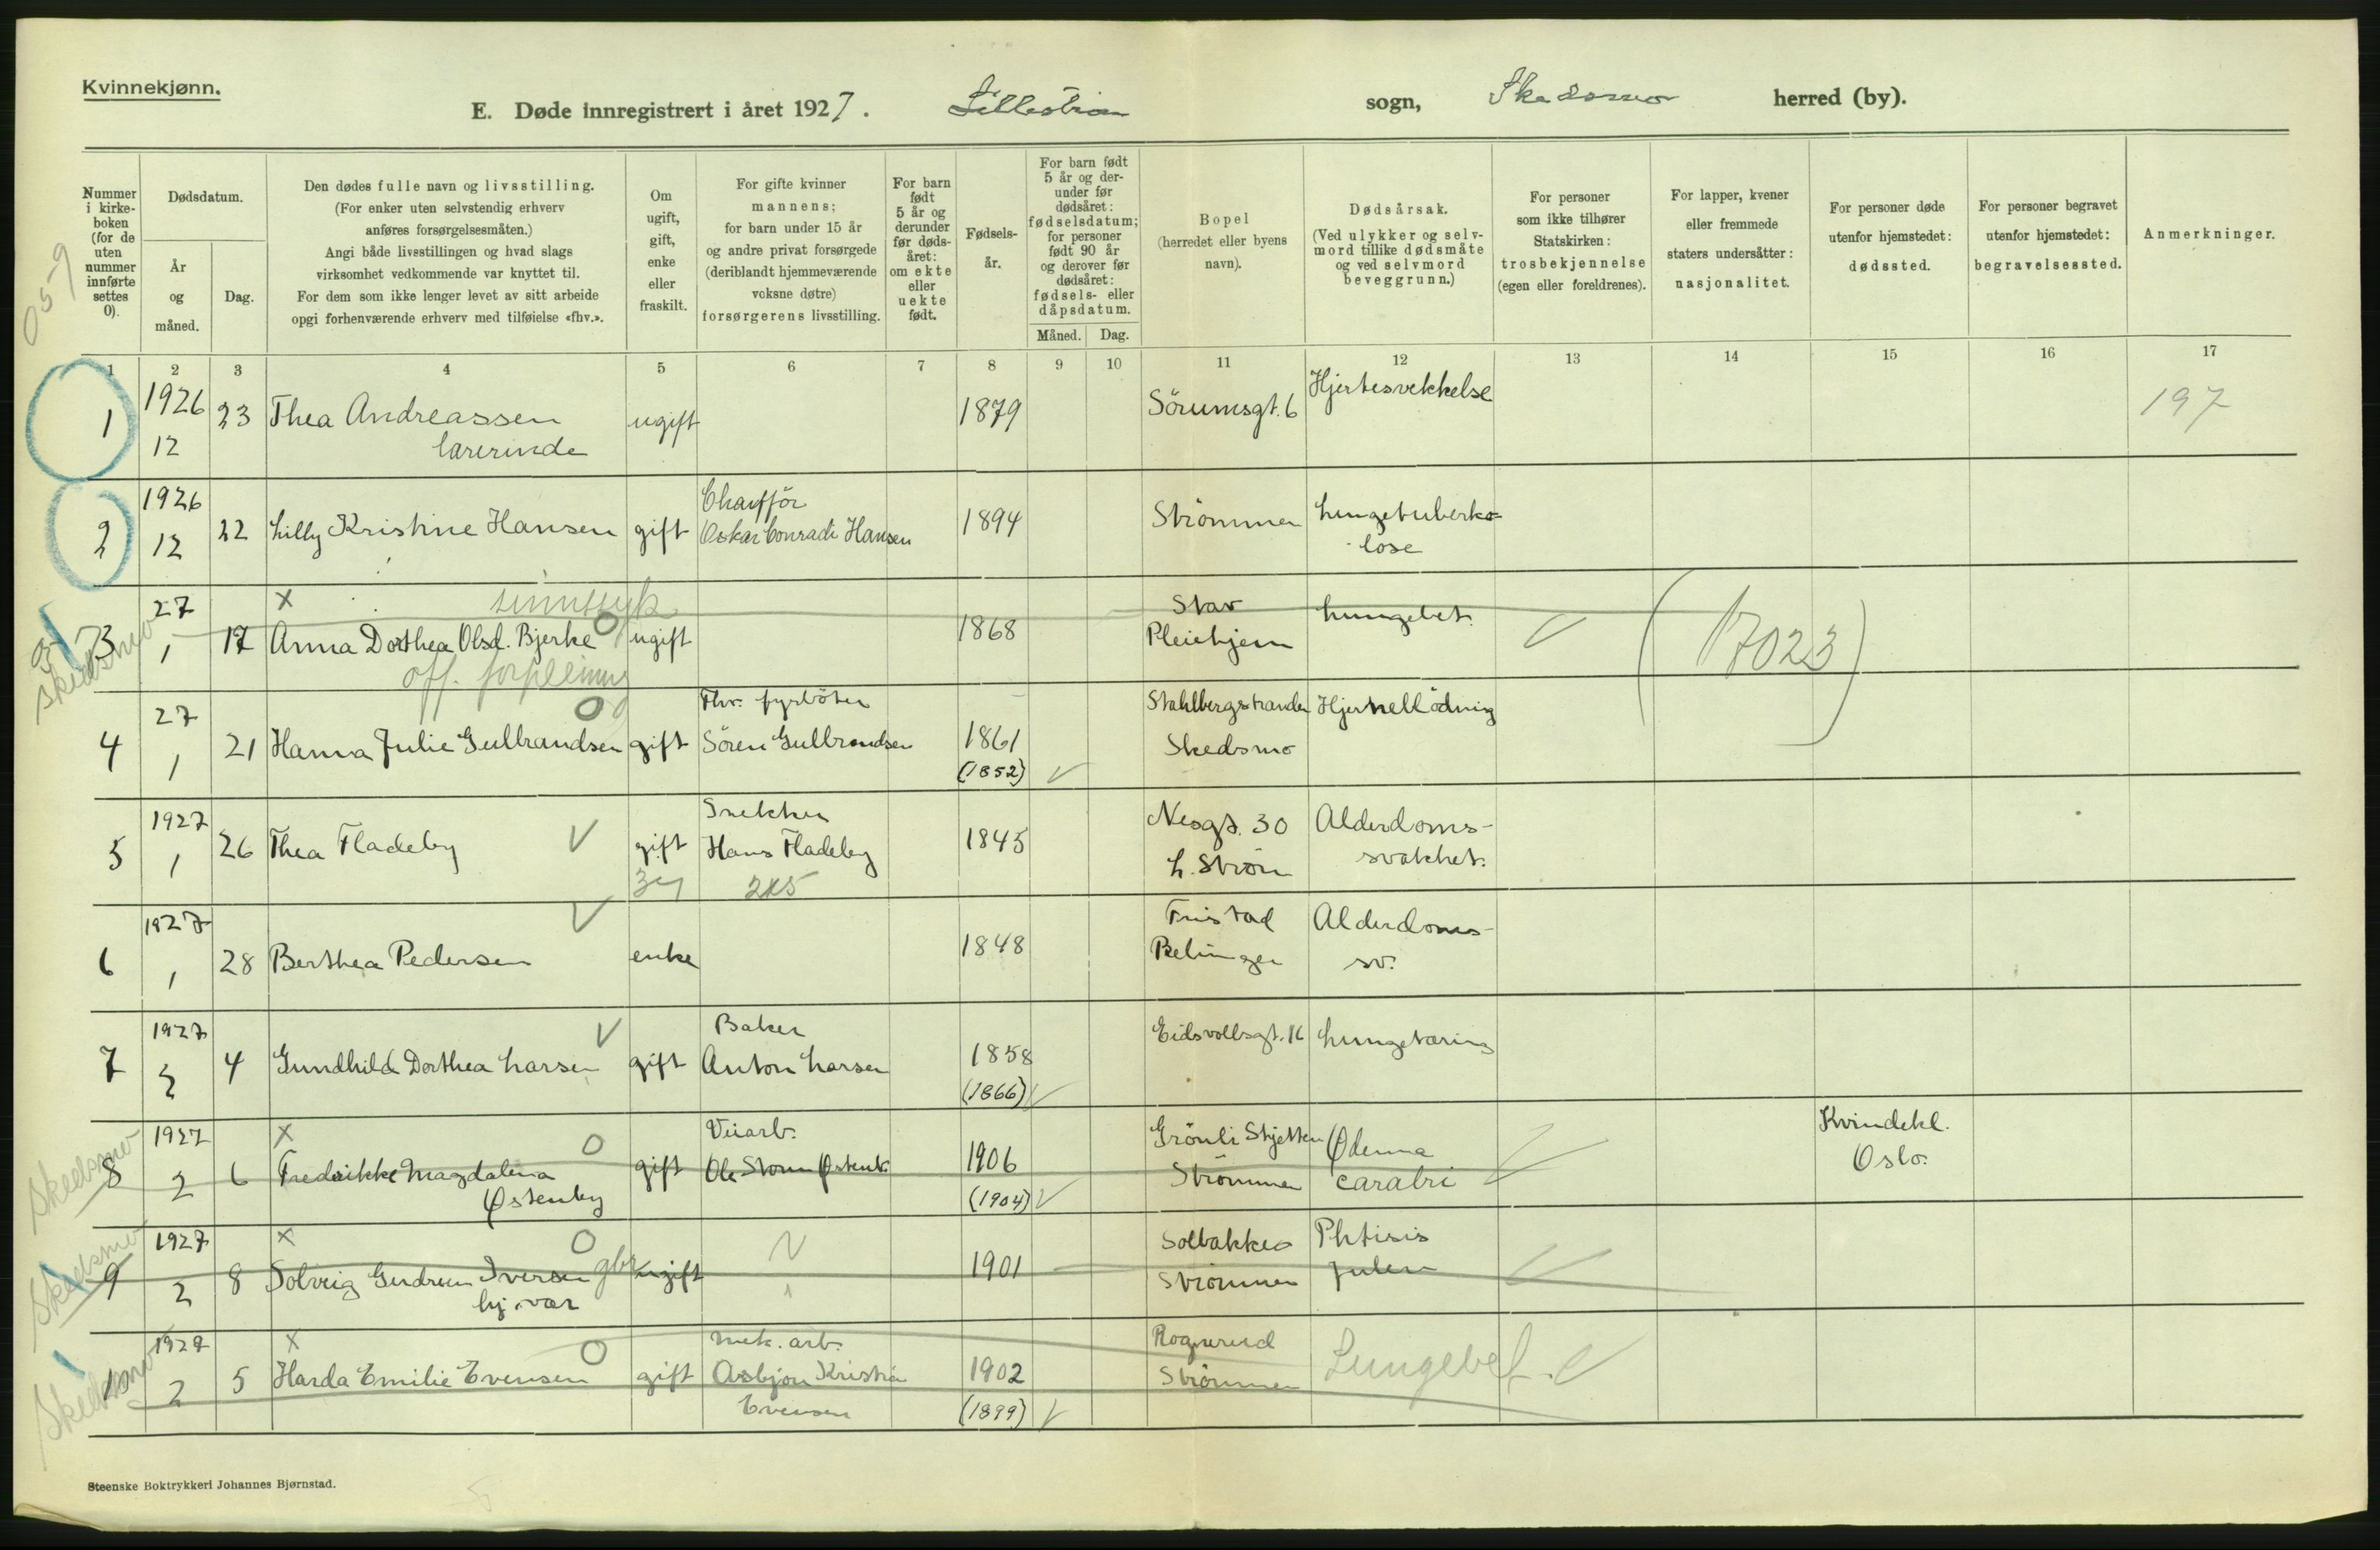 Kvinnekjønn.
E. Døde innregistrert i året 1927. Lillestrøm sogn, Skedsmo herred (by).
Nummer i kirkeboken (for de uten nummer innførte settes 0).
Dødsdatum.
År og måned.
Dag.
Den dødes fulle navn og livsstilling.
(For enker uten selvstendig erhverv
anføres forsørgelsesmåten.)
Angi både livsstillingen og hvad slags
virksomhet vedkommende var knyttet til.
For dem som ikke lenger levet av sitt arbeide
opgi forhenværende erhverv med tilføielse «fhv.».
Om ugift, gift, enke eller fraskilt.
For gifte kvinner
mannens;
for barn under 15 år
og andre privat forsørgede
(deriblandt hjemmeværende
voksne døtre)
forsørgerens livsstilling.
For barn født 5 år og derunder før dødsåret: om ekte eller uekte født.
Fødselsår.
For barn født 5 år og derunder før dødsåret: fødselsdatum; for personer født 90 år og derover før dødsåret: fødsels- eller dåpsdatum.
Måned. Dag.
Bopel
(herredet eller byens
navn).
Dødsårsak.
(Ved ulykker og selvmord tillike dødsmåte
og ved selvmord
beveggrunn.)
For personer
som ikke tilhører
Statskirken:
trosbekjennelse
(egen eller foreldrenes).
For lapper, kvener
eller fremmede
staters undersåtter:
nasjonalitet.
For personer døde
utenfor hjemstedet:
dødssted.
For personer begravet
utenfor hjemstedet:
begravelsessted.
Anmerkninger.
1 2 3 4 5 6 7 8 9 10 11 12 13 14 15 16 17
1 1926 12 23 Thea Andreassen ugift 1879 Sörumsgt. 6 Hjertesvekkelse 197
lærerinde
2 1926 12 22 Lilly Kristine Hansen gift Chaufför 1894 Strömmen Lungetuberku-
Oskar Conradi Hansen
lose
Skedsmo
3 27 1 17 x sinnssyk
Anna Dorthea Olsd. Bjerke ugift 1868 Stav Lungebet. (17023)
Pleiehjem
off. forpleining
4 27 1 21 Hanna Julie Gulbrandsen gift Fhv. fyrböter 1861 Stahlbergstranden
Sören Gulbrandsen (1852) Skedsmo
5 1927 1 26 Thea Fladeby gift Snekker 1845 Nesgt. 30 Alderdoms-
Hans Fladeby L. Ström svakhet.
6 1927 1 28 Berthea Pedersen enke 1848 Alderdoms-
sv.
7 1927 2 4 Gundhilda Dorthea Larsen gift Baker 1858 Eidsvollsgt. 16 Lungetæring
Anton Larsen (1866)
Skedsmo
8 1927 2 6 x Fredrikke Magdalena gift Veiarb. 1906 Grönli Skjetten Ødema Kvindekl.
Østenby (1904) Strömmen Oslo.
Skedsmo
9 1927 2 8 x Solveig Gudrun Iversen ugift 1901 Solbakken Phtisis
hj. vær Strömmen
Skedsmo
10 1927 2 5 x Harda Emilie Evensen gift mek. arb. 1902 Rognerud Lungebet.
Asbjørn Kristian Strömmen
Evensen (1899)
Steenske Boktrykkeri Johannes Bjørnstad.